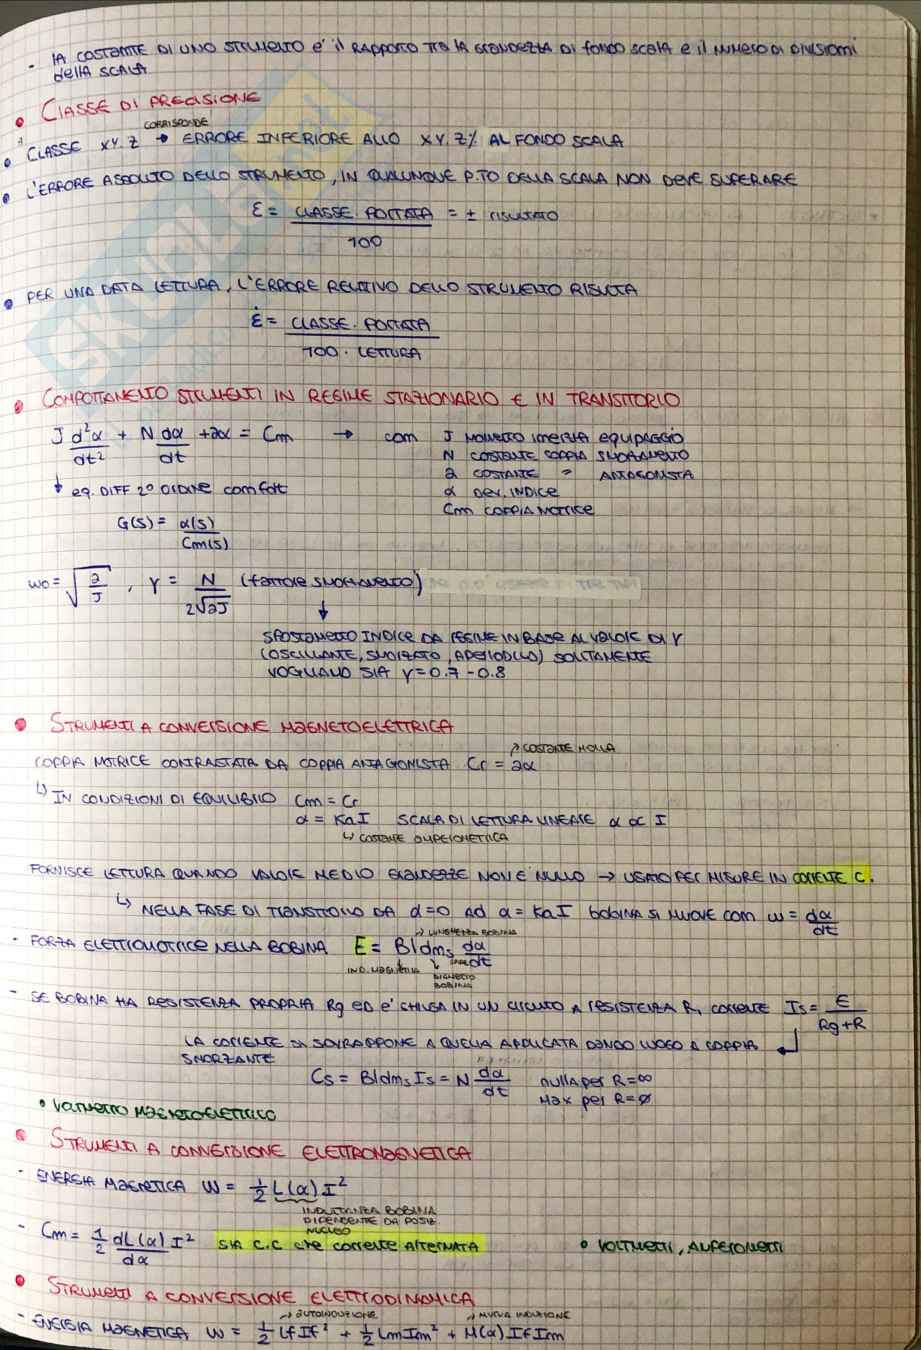 - LA COSTANTE DI UNO STRUMENTO E' IL RAPPORTO TRA LA GRANDEZZA DI FONDO SCALA E IL NUMERO DI DIVISIONI
DELLA SCALA
• CLASSE DI PRECISIONE
CORRISPONDE
• CLASSE XY.Z → ERRORE INFERIORE ALLO XY.Z% AL FONDO SCALA
• L'ERRORE ASSOLUTO DELLO STRUMENTO, IN QUALUNQUE P.TO DELLA SCALA NON DEVE SUPERARE
ε = CLASSE · PORTATA / 100 = ± RISULTATO
• PER UNA DATA LETTURA, L'ERRORE RELATIVO DELLO STRUMENTO RISULTA
ε̇ = CLASSE · PORTATA / 100 · LETTURA
• COMPORTAMENTO STRUMENTI IN REGIME STAZIONARIO E IN TRANSITORIO
J d²α/dt² + N dα/dt + aα = Cm → con J MOMENTO INERZIA EQUIPAGGIO
N COSTANTE COPPIA SMORZAMENTO
a COSTANTE " ANTAGONISTA
α DEV. INDICE
Cm COPPIA MOTRICE
↓ eq. DIFF 2° ORDINE con fdt
G(s) = α(s)/Cm(s)
ω0 = √(a/J) , γ = N/2√aJ (FATTORE SMORZAMENTO)
↓
SPOSTAMENTO INDICE DA REGIME IN BASE AL VALORE DI γ
(OSCILLANTE, SMORZATO, APERIODICO) SOLITAMENTE
VOGLIAMO SIA γ = 0.7 - 0.8
• STRUMENTI A CONVERSIONE MAGNETOELETTRICA
↗ COSTANTE MOLLA
COPPIA MOTRICE CONTRASTATA DA COPPIA ANTAGONISTA Cr = aα
↳ IN CONDIZIONI DI EQUILIBRIO Cm = Cr
α = KaI SCALA DI LETTURA LINEARE α ∝ I
↳ COSTANTE AMPEROMETRICA
FORNISCE LETTURA QUANDO VALORE MEDIO GRANDEZZE NON E' NULLO → USATO PER MISURE IN CORRENTE C.
↳ NELLA FASE DI TRANSITORIO DA α=0 AD α = KaI BOBINA SI MUOVE CON ω = dα/dt
→ LUNGHEZZA BOBINA
- FORZA ELETTROMOTRICE NELLA BOBINA E = Bldms dα/dt
IND. MAGNETICA
DIAMETRO
BOBINA
SPIRE
- SE BOBINA HA RESISTENZA PROPRIA Rg ED E' CHIUSA IN UN CIRCUITO A RESISTENZA R, CORRENTE Is = E/Rg+R
LA CORRENTE SI SOVRAPPONE A QUELLA APPLICATA DANDO LUOGO A COPPIA
SMORZANTE
Cs = Bldms Is = N dα/dt nulla per R=∞
Max per R=0
• VOLTMETRO MAGNETOELETTRICO
• STRUMENTI A CONVERSIONE ELETTROMAGNETICA
- ENERGIA MAGNETICA W = 1/2 L(α) I²
INDUTTANZA BOBINA
DIPENDENTE DA POSIZ.
NUCLEO
- Cm = 1/2 dL(α)/dα I² SIA C.C CHE CORRENTE ALTERNATA • VOLTMETRI, AMPEROMETRI
• STRUMENTI A CONVERSIONE ELETTRODINAMICA
→ AUTOINDUZIONE → MUTUA INDUZIONE
- ENERGIA MAGNETICA W = 1/2 Lf If² + 1/2 Lm Im² + M(α) If Im